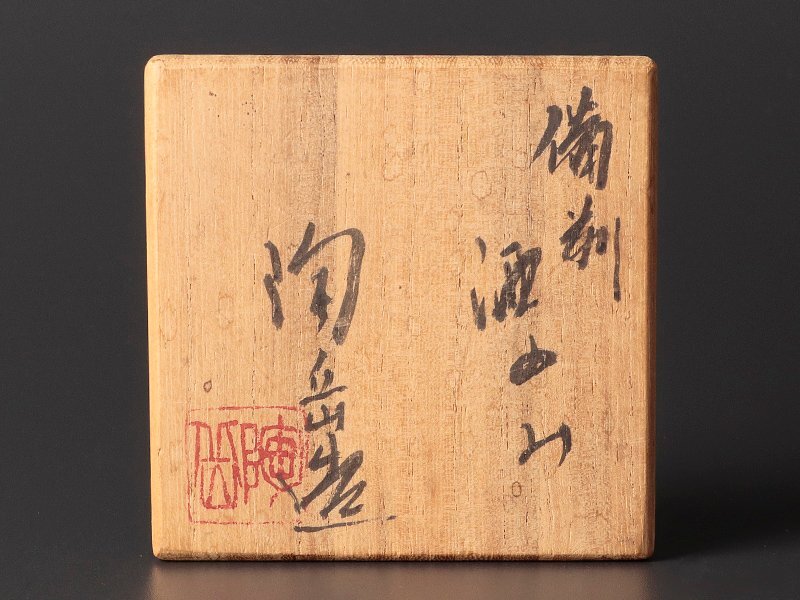 備前
酒呑
陶岳造
陶岳